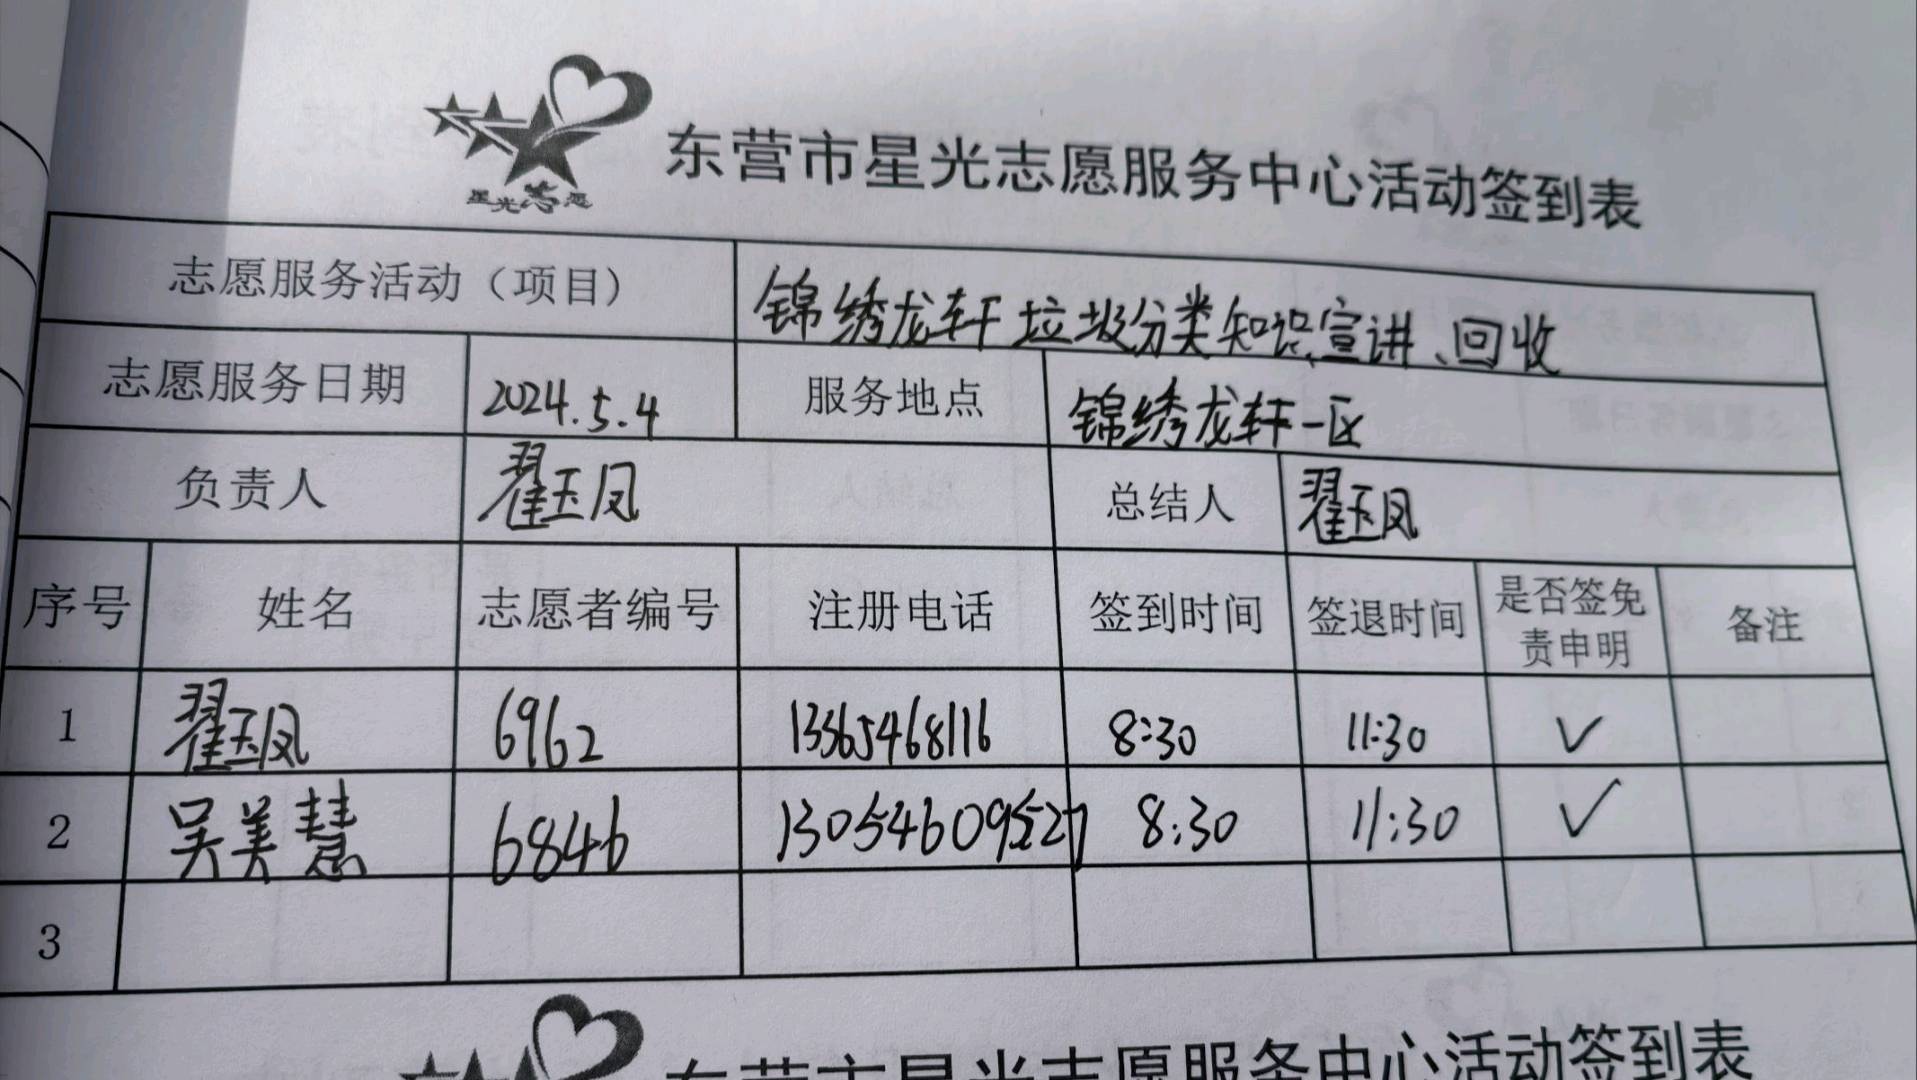 星光志愿
东营市星光志愿服务中心活动签到表
志愿服务活动（项目） 锦绣龙轩垃圾分类知识宣讲、回收
志愿服务日期 2024.5.4 服务地点 锦绣龙轩一区
负责人 翟玉凤 总结人 翟玉凤
序号 姓名 志愿者编号 注册电话 签到时间 签退时间 是否签免责申明 备注
1 翟玉凤 6962 13365468116 8:30 11:30 ✓
2 吴美慧 6846 13054609527 8:30 11:30 ✓
3
东营市星光志愿服务中心活动签到表